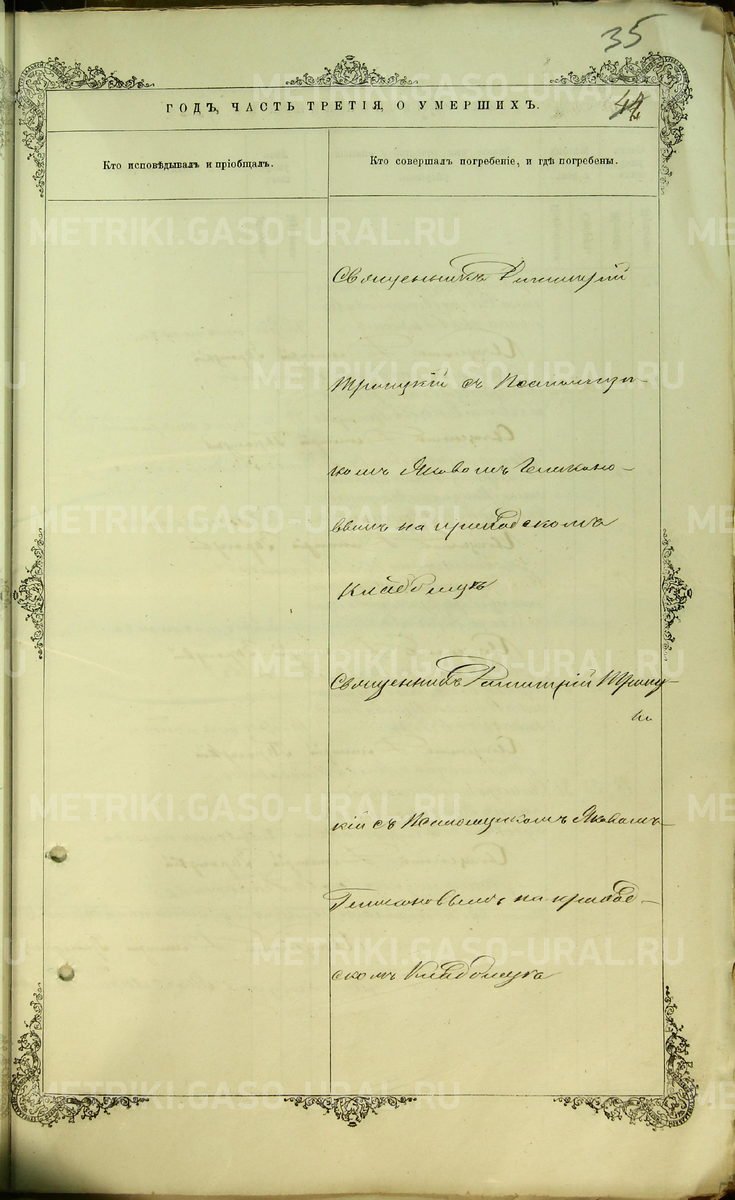 35
44
ГОДЪ, ЧАСТЬ ТРЕТІЯ, О УМЕРШИХЪ.
Кто исповѣдывалъ и пріобщалъ.
Кто совершалъ погребеніе, и гдѣ погребены.
Священникъ Димитрій
Троицкій съ Псаломщи-
комъ Яковомъ
вымъ на приходскомъ
кладбищѣ
Священникъ Димитрій Троиц-
кій съ Псаломщикомъ Яковомъ
на приход-
скомъ Кладбищѣ
METRIKI.GASO-URAL.RU